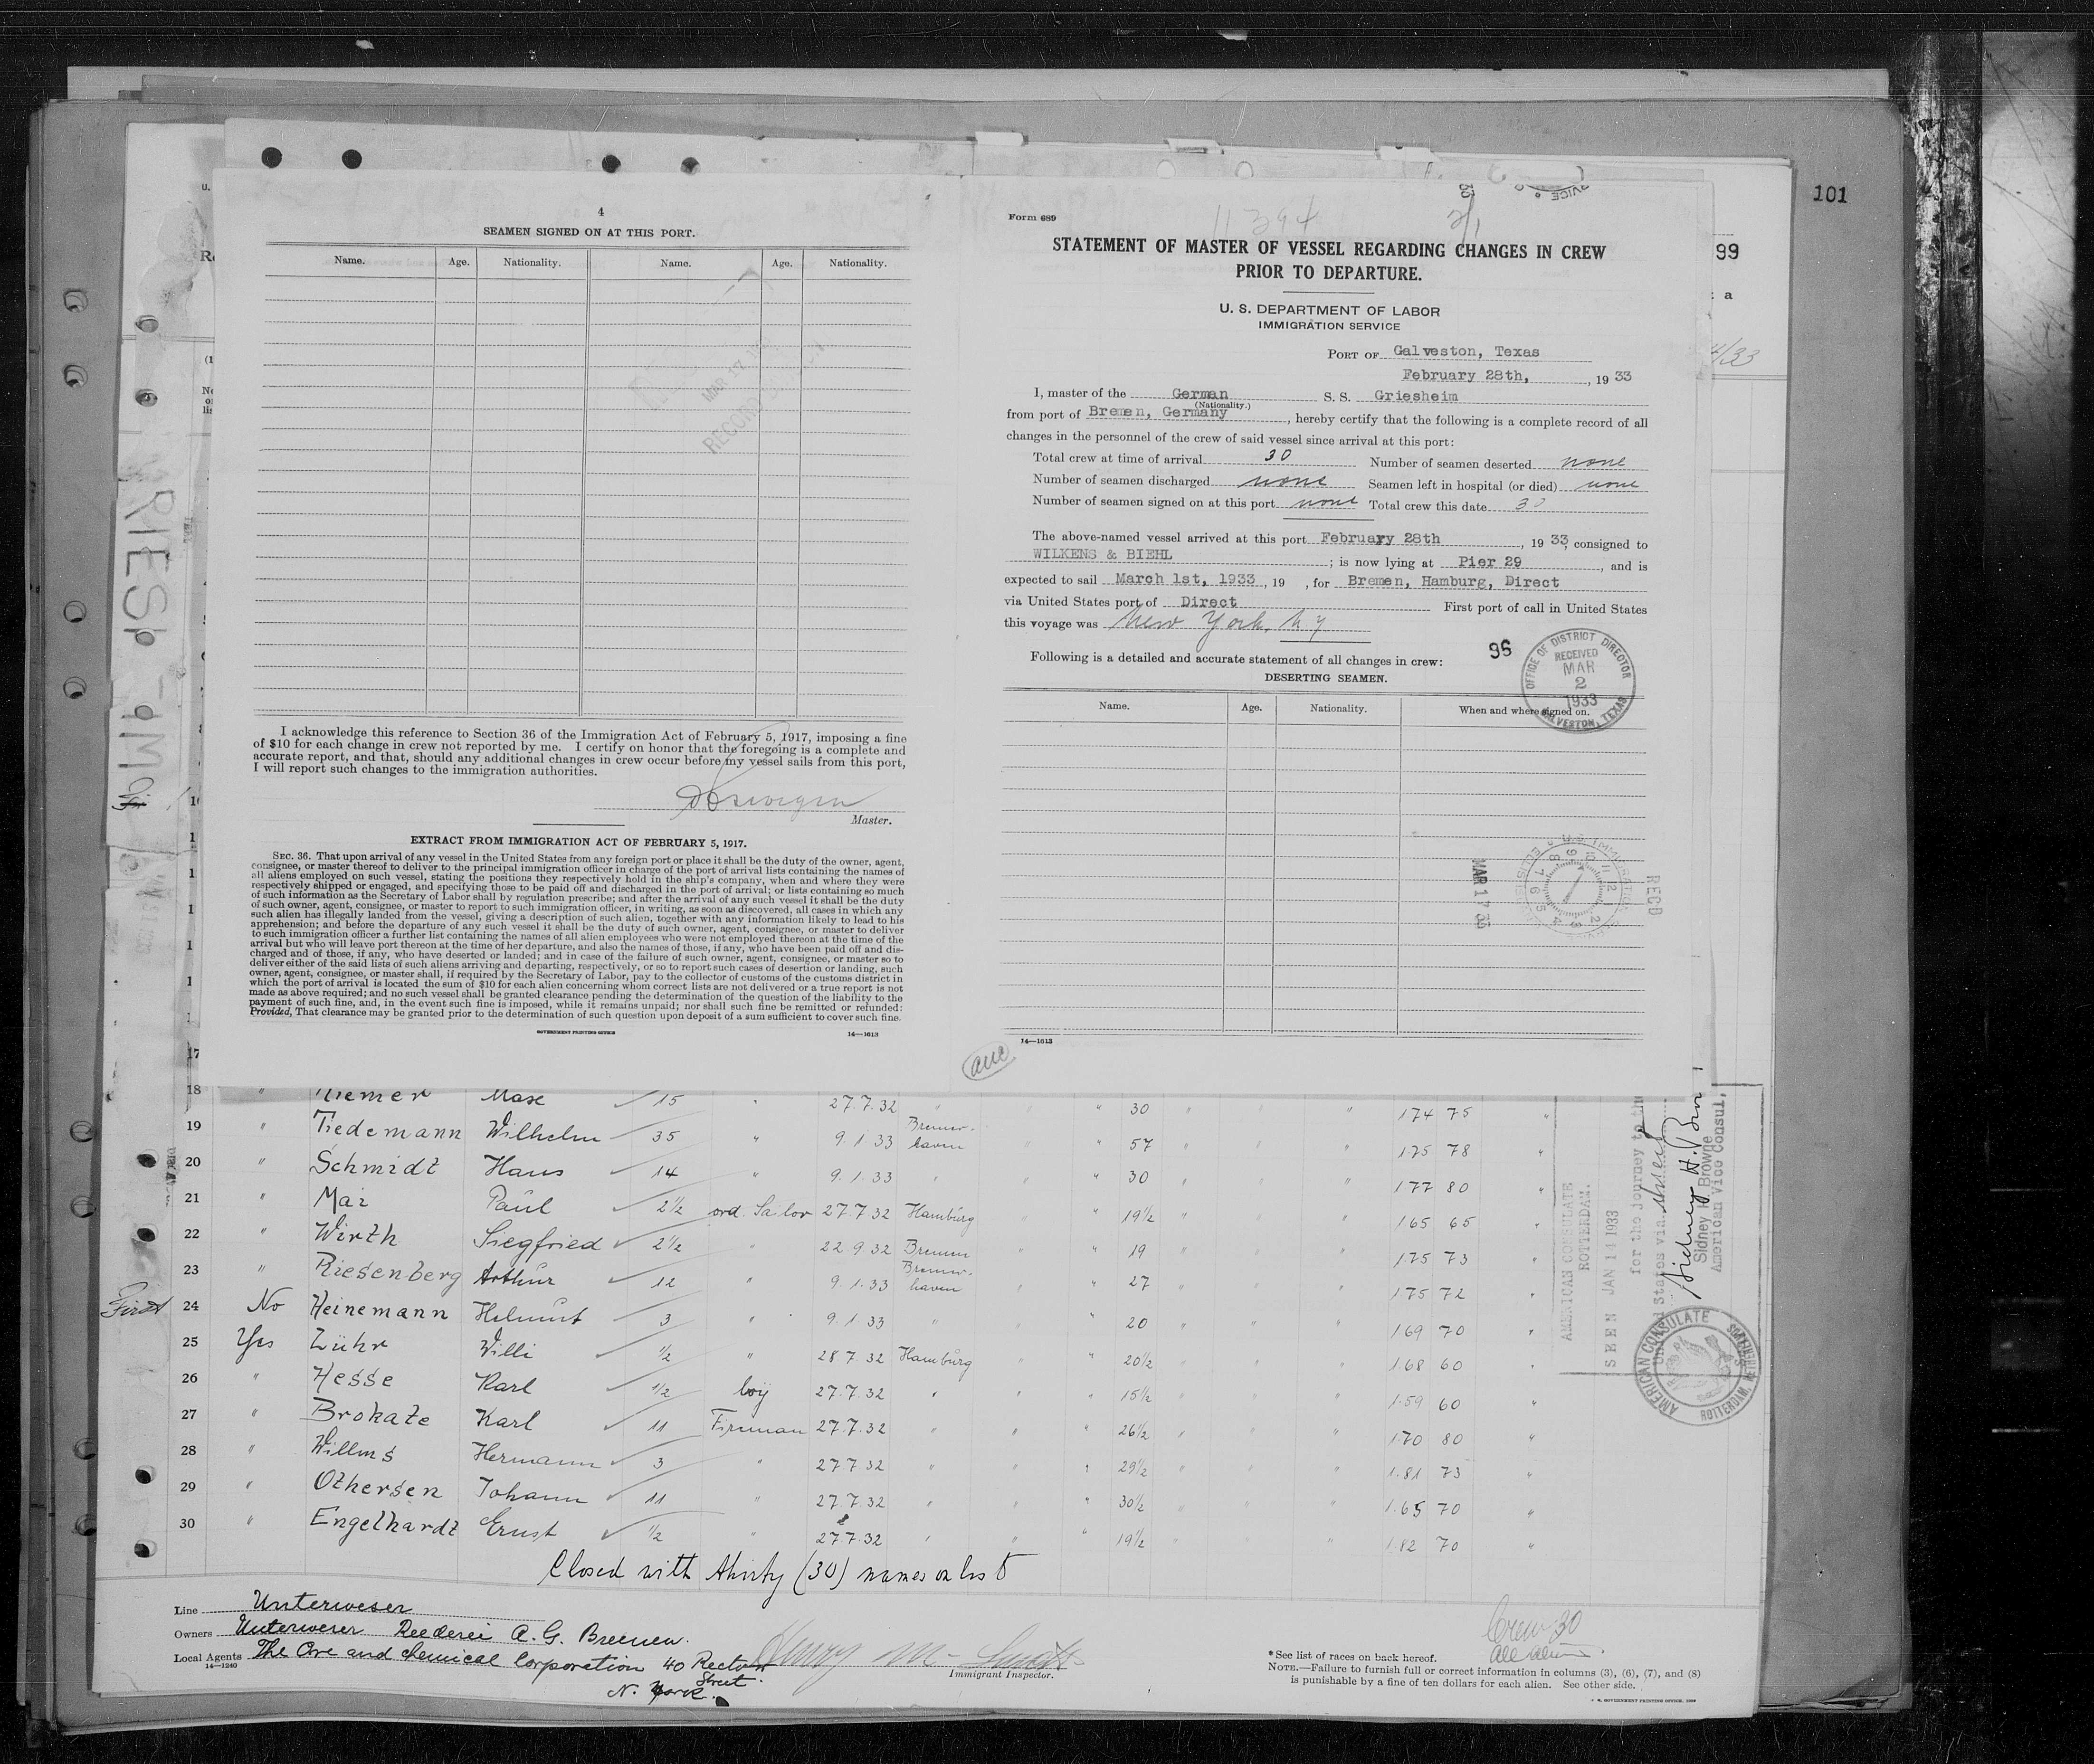 101
99
4
SEAMEN SIGNED ON AT THIS PORT.
Name. Age. Nationality. Name. Age. Nationality.
MAR 17
RECORD
I acknowledge this reference to Section 36 of the Immigration Act of February 5, 1917, imposing a fine
of $10 for each change in crew not reported by me. I certify on honor that the foregoing is a complete and
accurate report, and that, should any additional changes in crew occur before my vessel sails from this port,
I will report such changes to the immigration authorities.
Master.
EXTRACT FROM IMMIGRATION ACT OF FEBRUARY 5, 1917.
SEC. 36. That upon arrival of any vessel in the United States from any foreign port or place it shall be the duty of the owner, agent,
consignee, or master thereof to deliver to the principal immigration officer in charge of the port of arrival lists containing the names of
all aliens employed on such vessel, stating the positions they respectively hold in the ship's company, when and where they were
respectively shipped or engaged, and specifying those to be paid off and discharged in the port of arrival; or lists containing so much
of such information as the Secretary of Labor shall by regulation prescribe; and after the arrival of any such vessel it shall be the duty
of such owner, agent, consignee, or master to report to such immigration officer, in writing, as soon as discovered, all cases in which any
such alien has illegally landed from the vessel, giving a description of such alien, together with any information likely to lead to his
apprehension; and before the departure of any such vessel it shall be the duty of such owner, agent, consignee, or master to deliver
to such immigration officer a further list containing the names of all alien employees who were not employed thereon at the time of the
arrival but who will leave port thereon at the time of her departure, and also the names of those, if any, who have been paid off and dis-
charged and of those, if any, who have deserted or landed; and in case of the failure of such owner, agent, consignee, or master so to
deliver either of the said lists of such aliens arriving and departing, respectively, or so to report such cases of desertion or landing, such
owner, agent, consignee, or master shall, if required by the Secretary of Labor, pay to the collector of customs of the customs district in
which the port of arrival is located the sum of $10 for each alien concerning whom correct lists are not delivered or a true report is not
made as above required; and no such vessel shall be granted clearance pending the determination of the question of the liability to the
payment of such fine, and, in the event such fine is imposed, while it remains unpaid; nor shall such fine be remitted or refunded:
Provided, That clearance may be granted prior to the determination of such question upon deposit of a sum sufficient to cover such fine.
GOVERNMENT PRINTING OFFICE 14—1613
Form 689
11394
2/1
STATEMENT OF MASTER OF VESSEL REGARDING CHANGES IN CREW
PRIOR TO DEPARTURE.
U. S. DEPARTMENT OF LABOR
IMMIGRATION SERVICE
PORT OF Galveston, Texas
February 28th, , 19 33
I, master of the German S. S. Griesheim
(Nationality.)
from port of Bremen, Germany , hereby certify that the following is a complete record of all
changes in the personnel of the crew of said vessel since arrival at this port:
Total crew at time of arrival 30 Number of seamen deserted none
Number of seamen discharged none Seamen left in hospital (or died) none
Number of seamen signed on at this port none Total crew this date 30
The above-named vessel arrived at this port February 28th , 19 33, consigned to
WILKENS & BIEHL ; is now lying at Pier 29 , and is
expected to sail March 1st, 1933 , 19 , for Bremen, Hamburg, Direct
via United States port of Direct First port of call in United States
this voyage was New York, N y
Following is a detailed and accurate statement of all changes in crew:
96
OFFICE OF DISTRICT DIRECTOR
RECEIVED
MAR
2
1933
GALVESTON, TEXAS
DESERTING SEAMEN.
Name. Age. Nationality. When and where signed on.
MAR 17 33
REC'D
14—1613
18 " Riemer Maxe 15 " 27.7.32 " " 30 " " " 174 75 "
19 " Tiedemann Wilhelm 35 " 9.1.33 Bremerhaven " 57 " 175 78 "
20 " Schmidt Hans 14 " 9.1.33 " " 30 " " " 177 80 "
21 " Mai Paul 2½ ord. Sailor 27.7.32 Hamburg " 19½ " " " 165 65 "
22 " Wirth Siegfried 2½ " 22 9 32 Bremen " " 19 " " " 175 73 "
23 " Riesenberg Arthur 12 " 9.1.33 Bremerhaven " " 27 " " " 175 72 "
First 24 No Heinemann Helmut 3 " 9.1.33 " " " 20 " " " 169 70 "
25 Yes Lühr Willi ½ " 28 7 32 Hamburg " " 20½ " " " 168 60 "
26 " Hesse Karl ½ boy 27.7.32 " " " 15½ " " " 159 60 "
27 " Brokate Karl 11 Fireman 27.7.32 " " " 26½ " " " 170 80 "
28 " Willms Hermann 3 " 27 7 32 " " " 29½ " " " 1.81 73 "
29 " Othersen Johann 11 " 27.7.32 " " " 30½ " " " 1.65 70 "
30 " Engelhardt Ernst ½ " 27.7.32 " " " 19½ " " " 1.82 70 "
Closed with thirty (30) names on list
AMERICAN CONSULATE
ROTTERDAM.
SEEN JAN 14 1933
for the journey to the
United States via
Sidney H. Browne
American Vice Consul,
AMERICAN CONSULATE
ROTTERDAM, NETHERLANDS
Line Unterweser
Owners Unterweser Reederei A. G. Bremen.
Local Agents The Ore and chemical Corporation 40 Rector Street.
N. York.
14—1240
Immigrant Inspector.
Crew 30
All aliens
*See list of races on back hereof.
NOTE.—Failure to furnish full or correct information in columns (3), (6), (7), and (8)
is punishable by a fine of ten dollars for each alien. See other side.